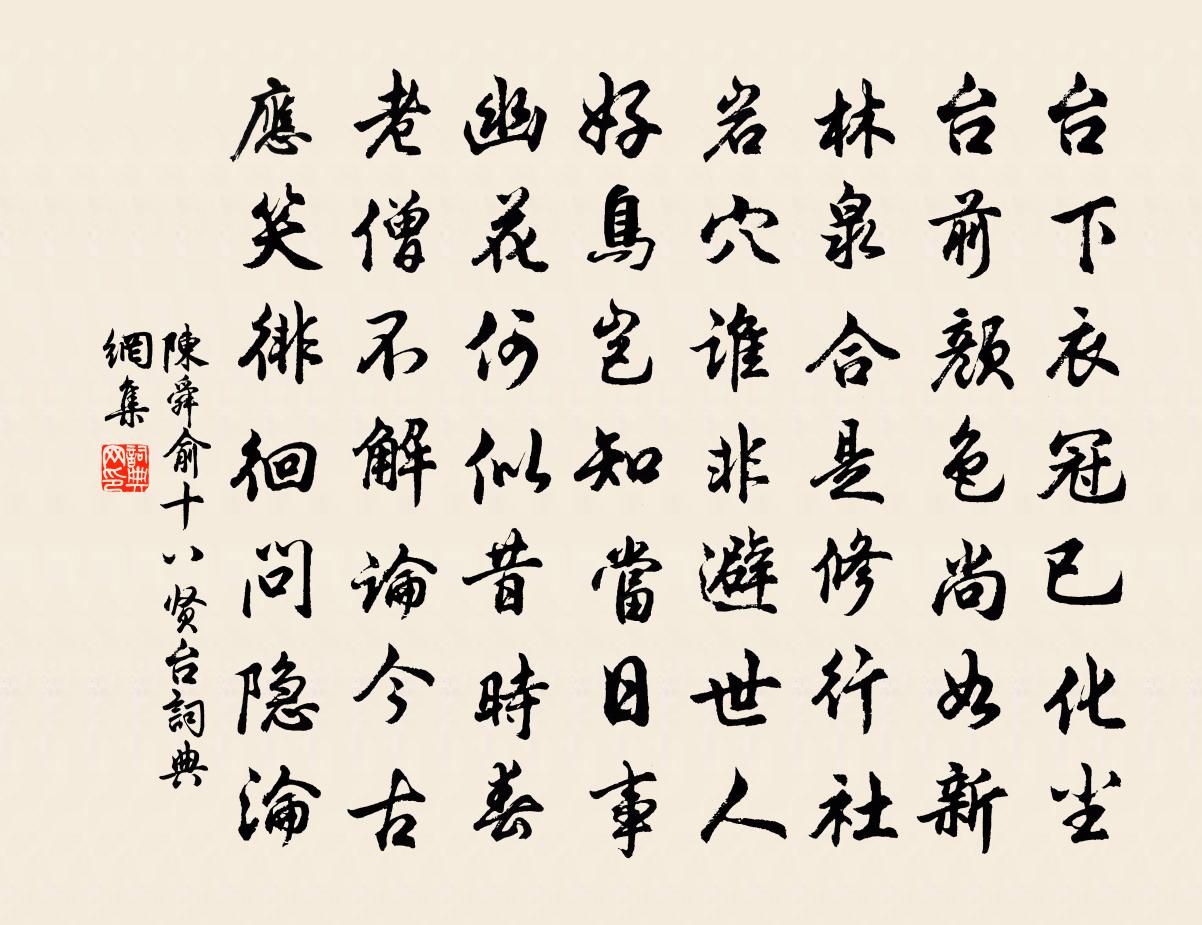 台下衣冠已化尘
台前颜色尚如新
林泉合是修行社
岩穴谁非避世人
好鳥岂知當日事
幽花何似昔時春
老僧不解論今古
應笑徘徊问隐淪
陳舜俞十八贤台詞典
網集
詞典
网印